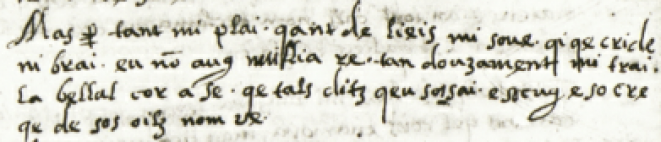 Mas per tant mi plai. qant de lieis mi soue. qi qe cride
ni brai. eu nō aug nuillia re. tan douzament mi trai.
La bellal cor a se. qe tals ditz qeu sospai. e scug e so cre
qe de sos oilz nom ue.